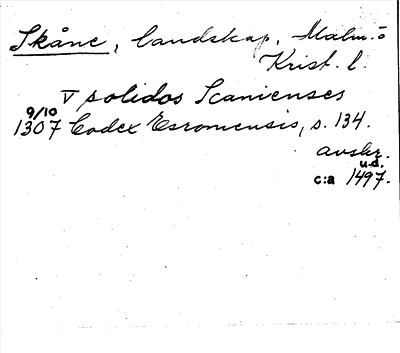 Skåne, landskap, Malm.- o
Krist. l.
V solidos Scanienses
9/10
1307 Codex Esromensis, s. 134.
avskr.
u.d.
c:a 1497.